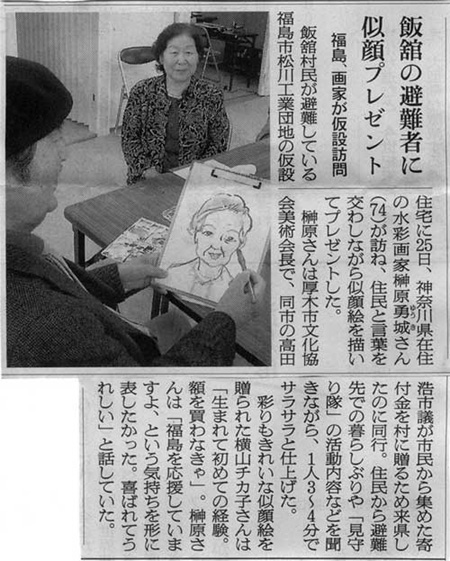 飯舘の避難者に
似顔プレゼント
福島、画家が仮設訪問
飯舘村民が避難している
福島市松川工業団地の仮設
住宅に25日、神奈川県在住
の水彩画家榊原勇城さん
ゆうき
(74)が訪ね、住民と言葉を
交わしながら似顔絵を描い
てプレゼントした。
榊原さんは厚木市文化協
会美術会長で、同市の高田
浩市議が市民から集めた寄
付金を村に贈るため来県し
たのに同行。住民から避難
先での暮らしぶりや「見守
り隊」の活動内容などを聞
きながら、1人3〜4分で
サラサラと仕上げた。
彩りもきれいな似顔絵を
贈られた横山チカ子さんは
「生まれて初めての経験。
額を買わなきゃ」。榊原さ
んは「福島を応援していま
すよ、という気持ちを形に
表したかった。喜ばれてう
れしい」と話していた。